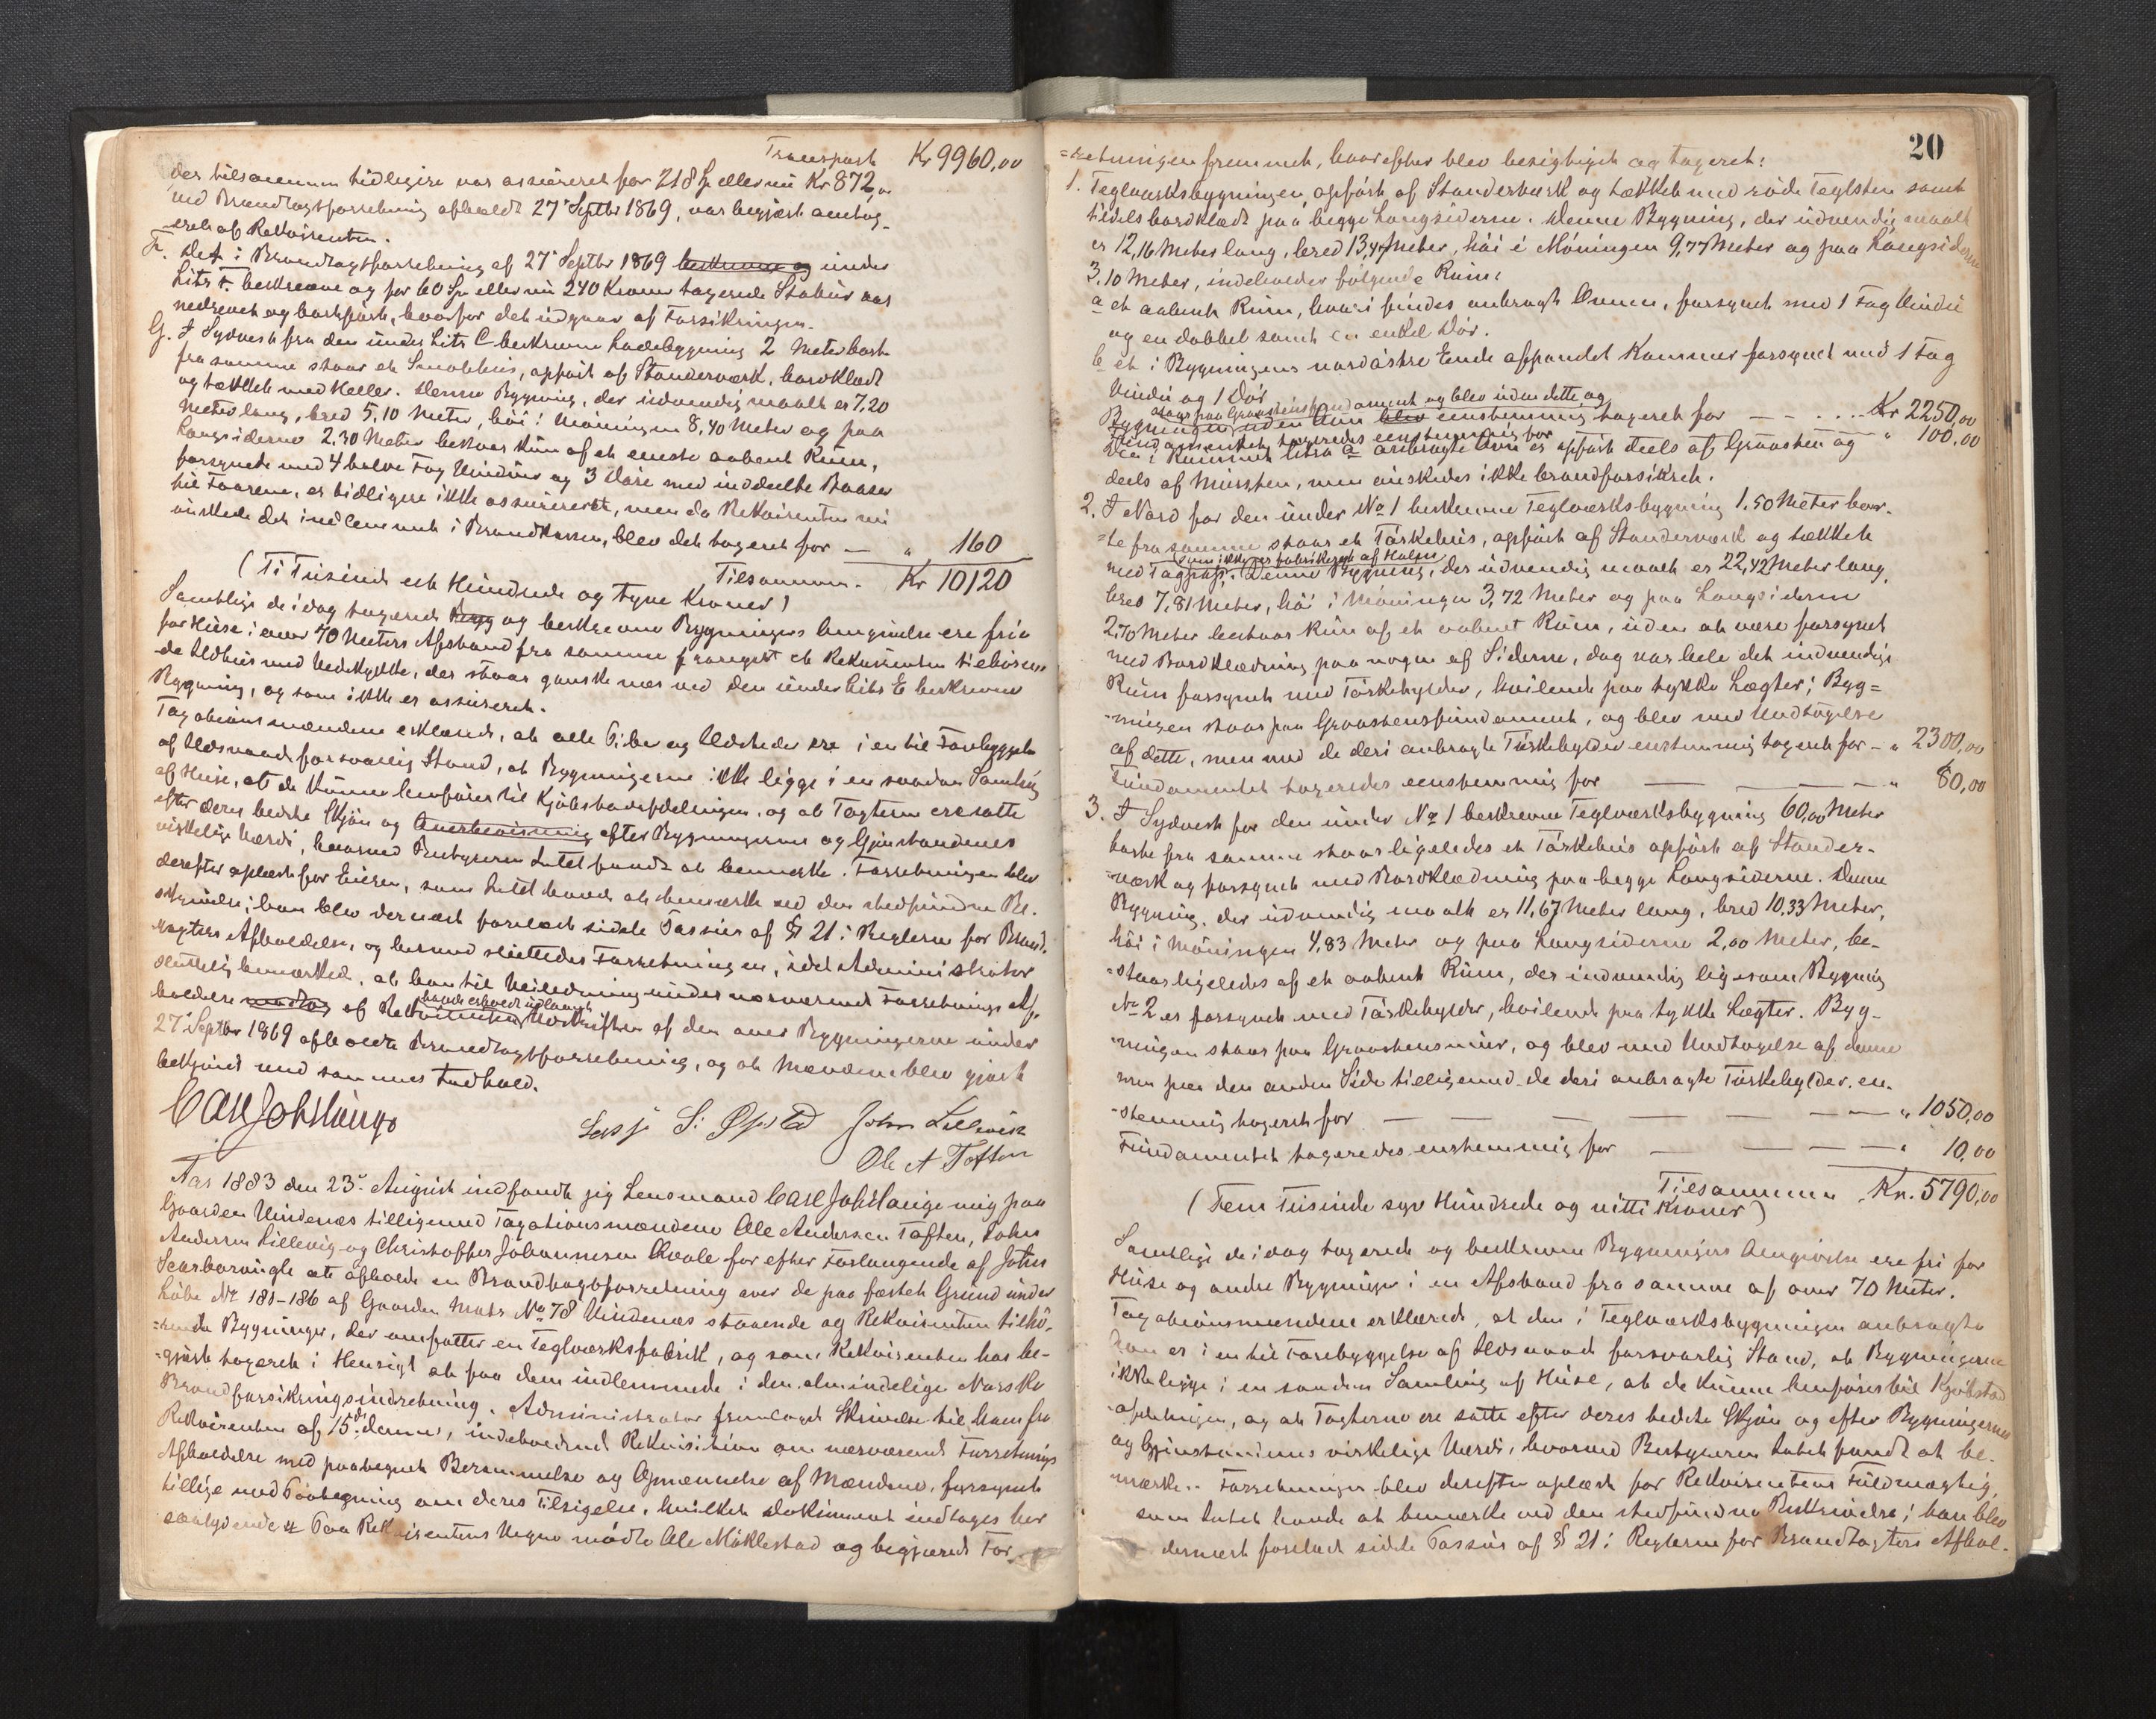 Transport Kr 9960,00
der tilsammen tidligere var assureret for 218 Sp eller nu Kr 872,00
ved Brandtaxtforretning afholdt 27 Septbr 1869, var begjært omtax-
eret af Rekvirenten.
F. Det i Brandtaxtforretning af 27 Septbr 1869 beskrevne og under
Litr F. beskrevne og for 60 Sp eller nu 240 Kroner taxerede Stabur var
nedrevet og bortført, hvorfor det udgaar af Forsikringen.
G. I Sydvest fra den under Litr C beskrevne Ladebygning 2 Meter bort
fra samme staar et Smalehus, opført af Standerværk, bordklædt
og tækket med Heller. Denne Bygning, der udvendig maalt er 7,20
Meter lang, bred 5,10 Meter, høi i Møningen 8,40 Meter og paa
Langsiderne 2,30 Meter bestaar kun af et eneste aabent Rum,
forsynet med 4 halve Fag Vinduer og 3 Døre med inddeelte Baaser
til Faarene, er tidligere ikke assureret, men da Rekvirenten nu
ønskede det indlemmet i Brandkassen, blev det taxeret for — " 160
Tilsammen. Kr 10120
(Ti Tusinde et Hundrede og tyve Kroner)
Samtlige de idag taxerede Bygg og beskrevne Bygningers Omgivelse ere frie
for Huse i over 70 Meters Afstand fra samme fraregnet et Rekvirenten tilhøren-
de Ildhus med Vedskykke, der staar ganske nær ved den under Litr E beskrevne
Bygning, og som ikke er assureret.
Taxationsmændene erklærede, at alle Piber og Ildsteder ere i en til Forebyggelse
af Ildsvaade forsvarlig Stand, at Bygningerne ikke ligge i en saadan Samling
af Huse, at de kunne henføres til Kjøbstadafdelingen, og at Taxterne ere satte
efter deres bedste Skjøn og Overbevisning efter Bygningernes og Gjenstandenes
virkelige Værdi, hvorved Bestyreren Intet fandt at bemærke. Forretningen blev
derefter oplæst for Eieren, som Intet havde at bemærke ved den stedfundne Be-
skrivelse; han blev dernæst forelæst sidste Passus af § 21 i Reglerne for Brand-
taxters Afholdelse, og hermed sluttedes Forretningen, idet Administrator
sluttelig bemærked, at han til Veiledning under nærværende Forretnings Af-
havde erholdt udlaant
holdelse modtog af Rekvirenten Udskriften af den over Bygningerne under
27 Septbr 1869 afholdte Brandtaxtforretning, og at Mændene blev gjort
bekjendt med sammes Indhold.
Carl Joh Lange
Lasse S. Opstad John Lillevik
Ole A Toften
Aar 1883 den 23de August indfandt jeg Lensmand Carl Joh Lange mig paa
Gaarden Vindenæs tilligemed Taxationsmændene Ole Andersen Toften, John
Andersen Lillevig og Christoffer Johannesen Aavle for efter Forlangende af John
Scarborough at afholde en Brandtaxtforretning over de paa fæstet Grund under
Løbe № 181-186 af Gaarden Matr № 78 Vindenæs staaende og Rekvirenten tilhø-
-rende Bygninger, der omfatter en Teglværksfabrik, og som Rekvirenten har be-
-gjært taxeret i Hensigt at faa dem indlemmede i den almindelige Norske
Brandforsikringsindretning. Administrator fremlagde Skrivelse til ham fra
Rekvirenten af 15de dennes, indeholdende Rekvisition om nærværende Forretnings
Afholdelse med paategnet Berammelse og Opnævnelse af Mændene, forsynet
tillige med Paategning om deres Tilsigelse, hvilket Dokument indtages her
saalydende: Paa Rekvirentens Vegne mødte Ole Møklestad og begjærede For-
20
=retningen fremmet, hvorefter blev besigtiget og taxeret:
1. Teglværksbygningen, opført af Standerværk og tækket med røde Taglsten samt
tildels bordklædt paa begge Langsiderne. Denne Bygning, der udvendig maalt
er 12,16 Meter lang, bred 13,47 Meter, høi i Møningen 9,77 Meter og paa Langsiderne
3,10 Meter, indeholder følgende Rum:
a et aabent Rum, hvori findes anbragt Ovnen, forsynet med 1 Fag Vindu
og en dobbel samt en enkel Dør.
b et i Bygningens nordøstre Ende afpandlet Kammer forsynet med 1 Fag
Vindu og 1 Dør
staar paa Graastensfundament og blev uden dette og
Bygningen uden Ovn blev enstemmig taxeret for — — . . . Kr 2250,00
Fundamentet taxeredes eenstemmig for " 100,00
Den i Rummet litra a anbragte Ovn er opført deels af Graasten og
deels af Mursten, men ønskedes ikke brandforsikret.
2. I Nord for den under № 1 beskrevne Teglværksbygning 1,50 Meter bor-
-te fra samme staar et Tørkehus, opført af Standerværk og tækket
som ikke er fabrikeret af Halm
med Tagpap. Denne Bygning, der udvendig maalt er 22,42 Meter lang,
bred 7,81 Meter, høi i Møningen 3,72 Meter og paa Langsiderne
2,70 Meter bestaar kun af et aabent Rum, uden at være forsynet
med Bordklædning paa nogen af Siderne, dog var hele det indvendige
Rum forsynet med Tørkehylder, hvilende paa tykke Lægter; Byg=
-ningen staar paa Graastensfundament, og blev med Undtagelse
af dette, men med de deri anbragte Tørkehylder enstemmig taxeret for - " 2300,00
Fundamentet taxeredes eenstemmig for — — — " 80,00
3. I Sydvest for den under № 1 beskrevne Teglværksbygning 60,00 Meter
borte fra samme staar ligeledes et Tørkehus opført af Stander-
-værk og forsynet med Bordklædning paa begge Langsiderne. Denne
Bygning, der udvendig maalt er 11,67 Meter lang, bred 10,33 Meter,
høi i Møningen 4,83 Meter og paa Langsiderne 2,00 Meter, be-
-staar ligeledes af et aabent Rum, der indvendig ligesom Bygning
№ 2 er forsynet med Tørkehylder, hvilende paa tykke Lægter. Byg-
-ningen staar paa Graastensmur, og blev med Undtagelse af denne
men paa den anden Side tilligemed de deri anbragte Tørkehylder en-
-stemmig taxeret for — — — — — — " 1050,00
Fundamentet taxeredes enstemmig for — — — — " 10,00
Tilsammen Kr. 5790,00
(Fem Tusinde syv Hundrede og nitti Kroner)
Samtlige de idag taxerede og beskrevne Bygningers Omgivelse ere fri for
Huse og andre Bygninger i en Afstand fra samme af over 70 Meter.
Taxationsmændene erklærede, at den i Teglværksbygningen anbragte
Ovn er i en til Forebyggelse af Ildsvaade forsvarlig Stand, at Bygningerne
ikke ligge i en saadan Samling af Huse, at de kunne henføres til Kjøbstad-
-afdelingen, og at Taxterne ere satte efter deres bedste Skjøn og efter Bygningernes
og Gjenstandenes virkelige Værdi, hvorved Bestyreren Intet fandt at be-
mærke. Forretningen blev derefter oplæst for Rekvirentens Fuldmægtig,
som Intet havde at bemærke ved den stedfundne Beskrivelse; han blev
dernæst forelæst sidste Passus af § 21 i Reglerne for Brandtaxters Afhol-